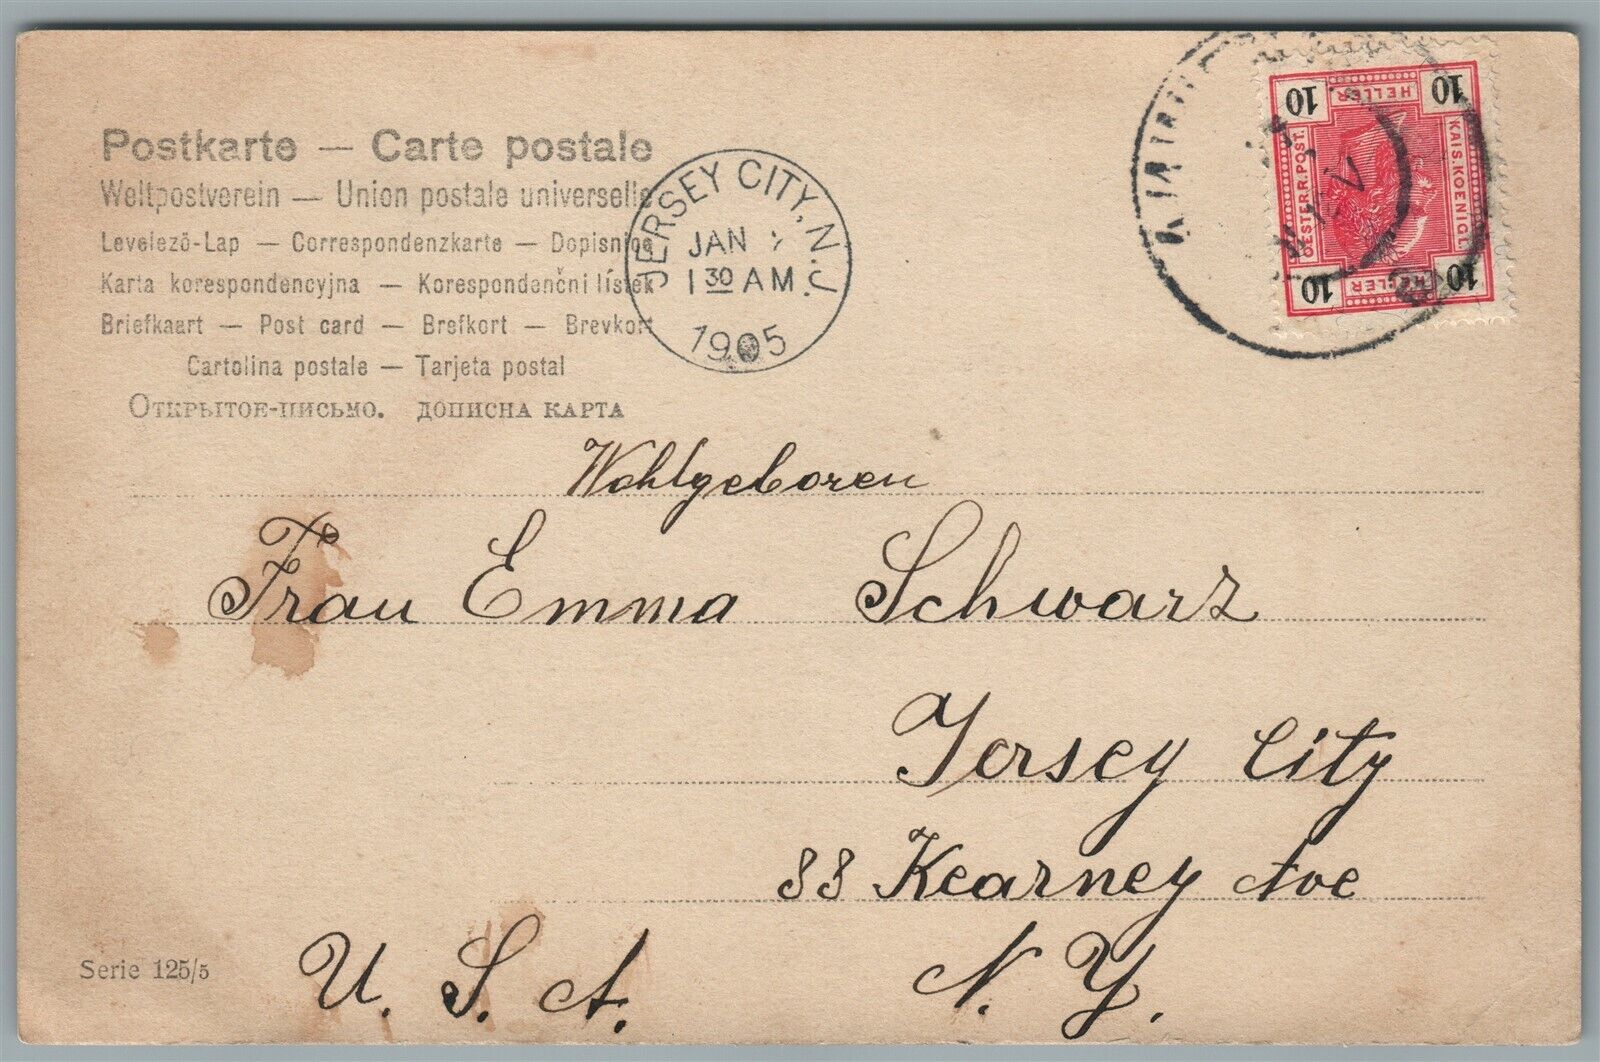 Postkarte — Carte postale
Weltpostverein — Union postale universelle
Levelező-Lap — Correspondenzkarte — Dopisnice
Karta korespondencyjna — Korespondenční lístek
Briefkaart — Post card — Brefkort — Brevkort
Cartolina postale — Tarjeta postal
Открытое-письмо. дописна карта
JERSEY CITY, N.J.
JAN
1 30 AM
1905
10 HELLER 10
OESTERR. POST.
KAIS. KOENIGL.
10 HELLER 10
Wohlgeboren
Frau Emma Schwarz
Jersey City
88 Kearney Ave
U. S. A. N. Y.
Serie 125/5